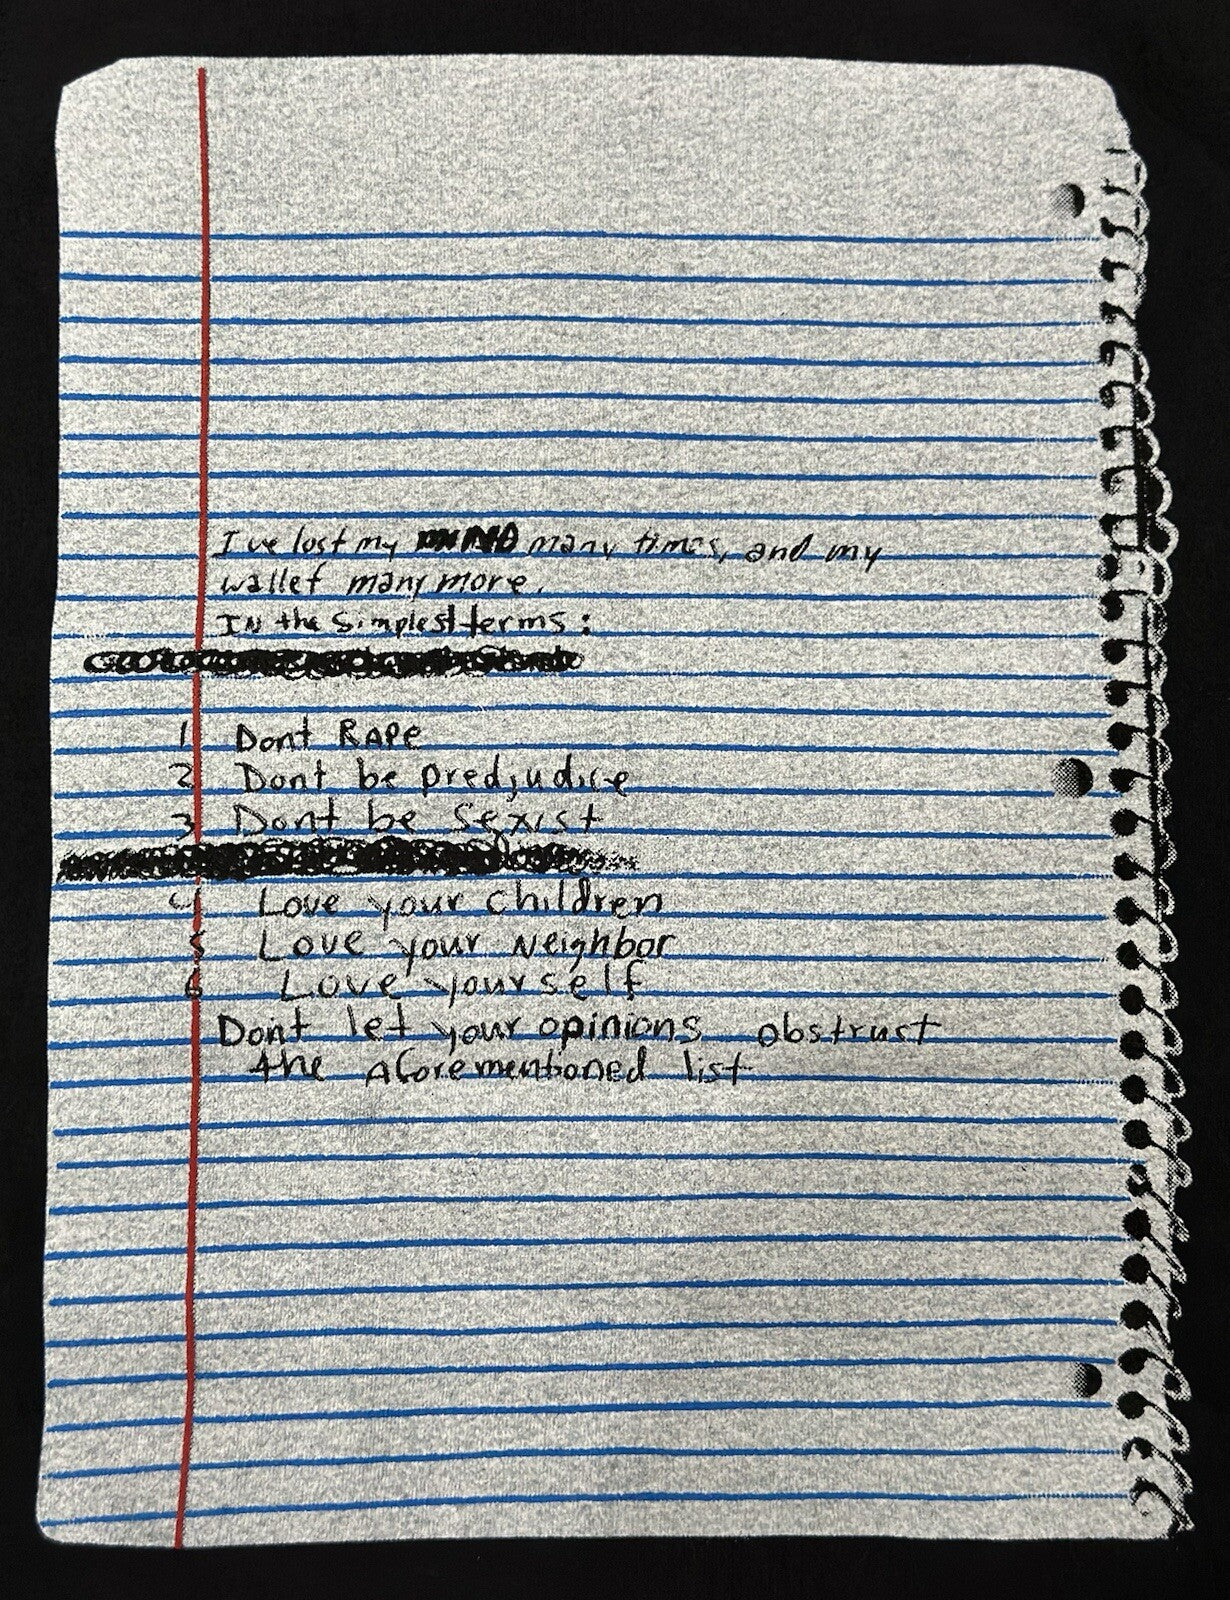 I've lost my MIND many times, and my
wallet many more.
IN the Simplest terms:
1 Dont RAPe
2 Dont be predjudice
3 Dont be Sexist
4 Love your children
5 Love your Neighbor
6 Love yourself
Don't let your opinions obstrust
the aforementioned list